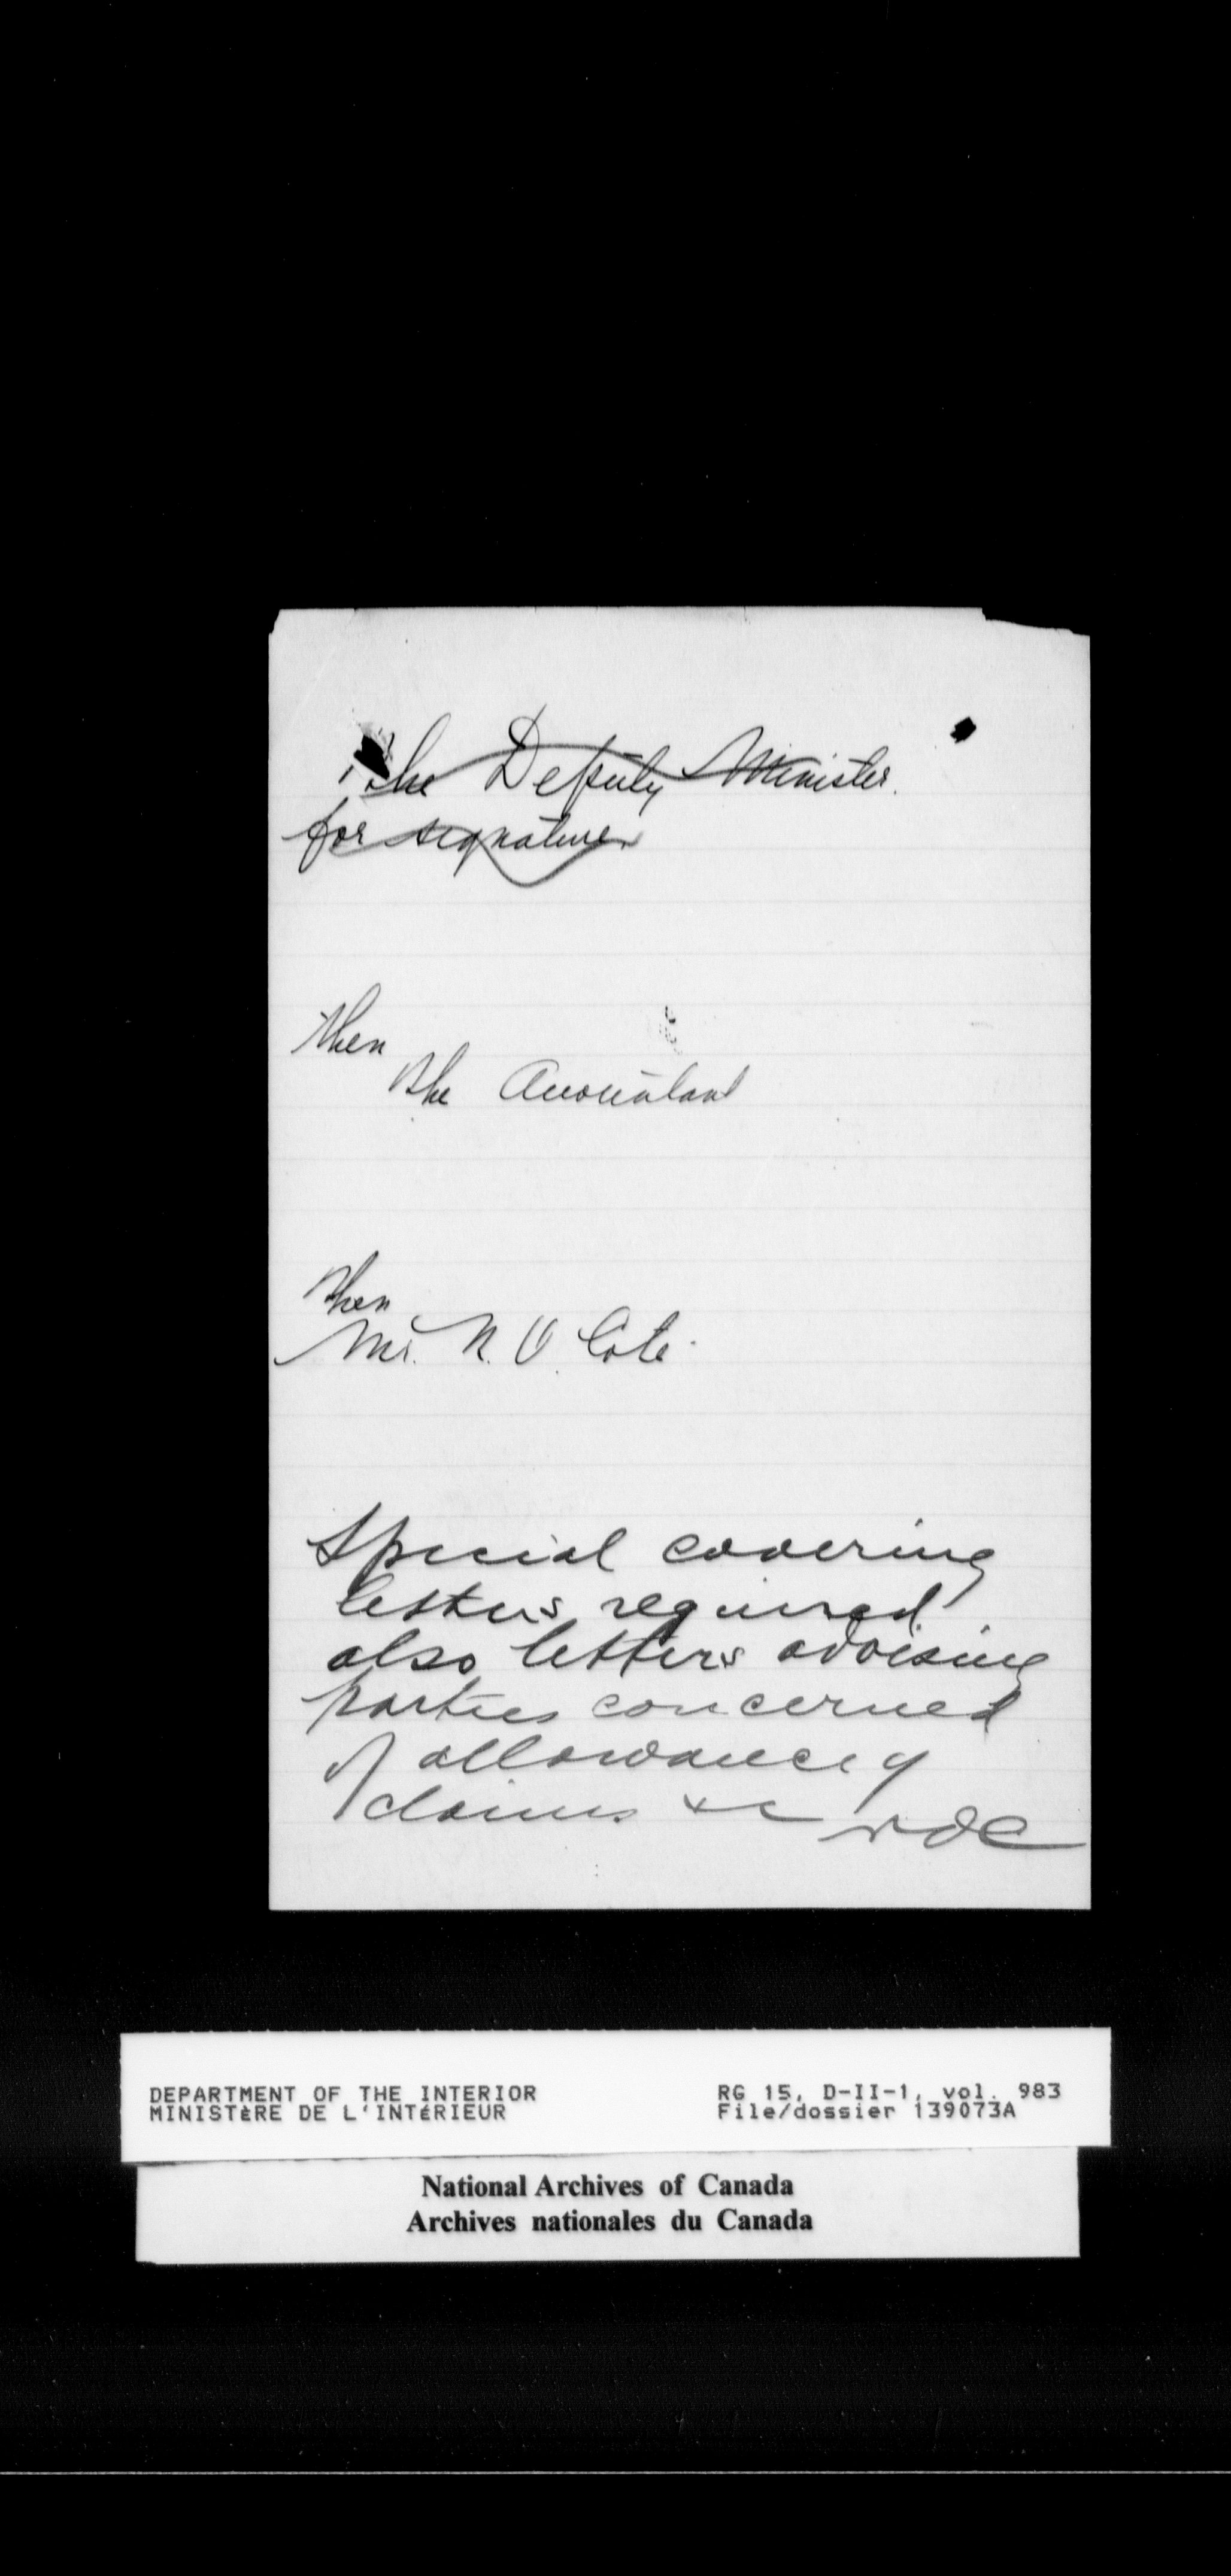 The Deputy Minister.
for signature
then
the Accountant
then
Mr. N. O. Coté
Special covering
letters required
also letters advising
parties concerned
of allowance of
claims &c NOC
DEPARTMENT OF THE INTERIOR
MINISTÈRE DE L'INTÉRIEUR
RG 15, D-II-1, vol. 983
File/dossier 139073A
National Archives of Canada
Archives nationales du Canada